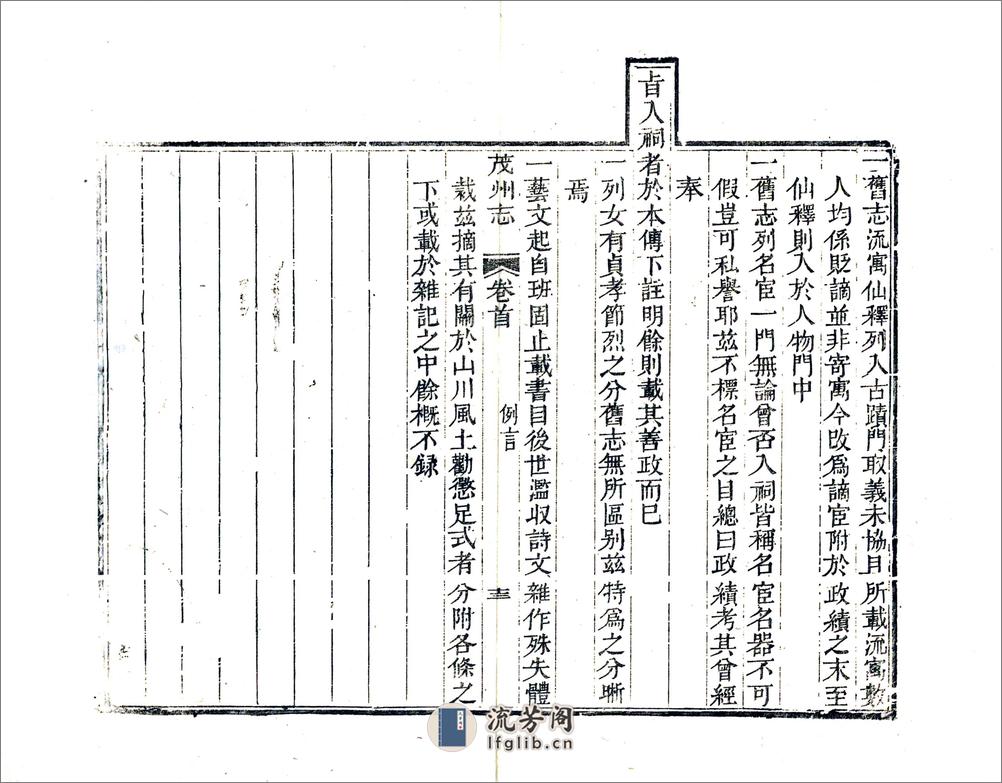 一舊志流寓仙釋列入古蹟門取義未協且所載流寓數
人均係貶謫並非寄寓今改爲謫宦附於政績之末至
仙釋則入於人物門中
一舊志列名宦一門無論曾否入祠皆稱名宦名器不可
假豈可私譽耶兹不標名宦之目總曰政績考其曾經
奉
旨入祠者於本傳下註明餘則載其善政而已
一列女有貞孝節烈之分舊志無所區别兹特爲之分晰
焉
一藝文起自班固止載書目後世濫收詩文雜作殊失體
茂州志 卷首 例言 十三
裁兹摘其有關於山川風土勸懲足式者分附各條之
下或載於雜記之中餘概不録
流芳阁
lfglib.cn